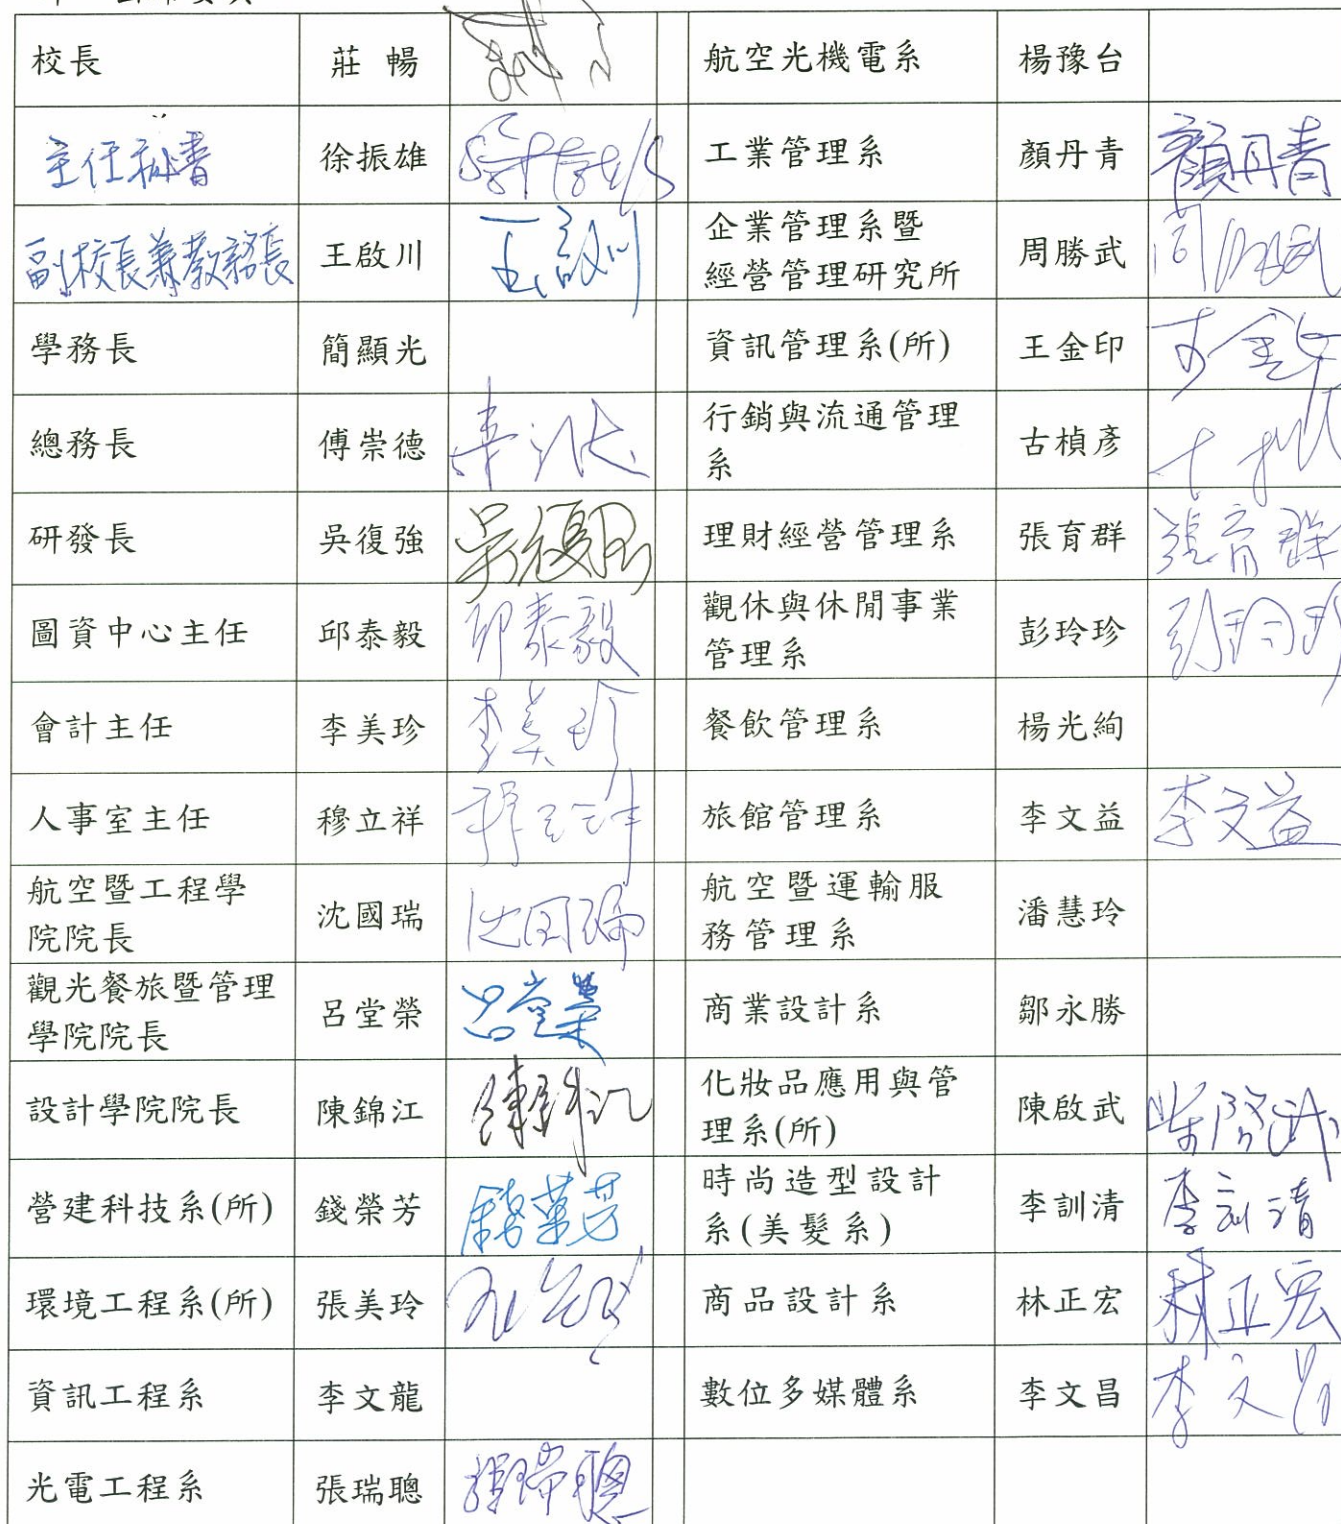 校長 莊暢 航空光機電系 楊豫台
主任秘書 徐振雄 工業管理系 顏丹青 顏丹青
副校長兼教務長 王啟川 王啟川 企業管理系暨
經營管理研究所 周勝武
學務長 簡顯光 資訊管理系(所) 王金印
總務長 傅崇德 行銷與流通管理
系 古楨彥
研發長 吳復強 吳復強 理財經營管理系 張育群 張育群
圖資中心主任 邱泰毅 邱泰毅 觀休與休閒事業
管理系 彭玲珍
會計主任 李美珍 李美珍 餐飲管理系 楊光絢
人事室主任 穆立祥 旅館管理系 李文益 李文益
航空暨工程學
院院長 沈國瑞 沈国瑞 航空暨運輸服
務管理系 潘慧玲
觀光餐旅暨管理
學院院長 呂堂榮 呂堂榮 商業設計系 鄒永勝
設計學院院長 陳錦江 化妝品應用與管
理系(所) 陳啟武
營建科技系(所) 錢榮芳 錢榮芳 時尚造型設計
系(美髮系) 李訓清 李訓清
環境工程系(所) 張美玲 商品設計系 林正宏 林正宏
資訊工程系 李文龍 數位多媒體系 李文昌 李文昌
光電工程系 張瑞聰 張瑞聰